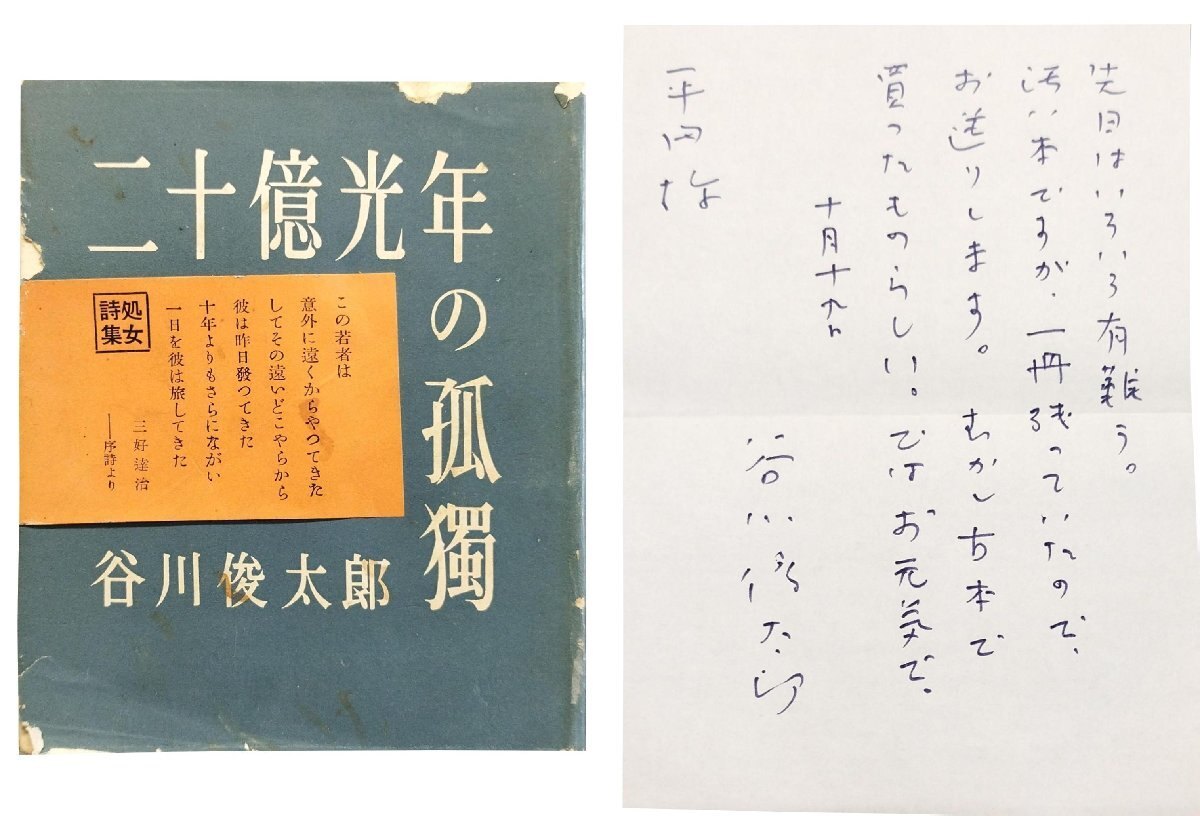 二十億光年の孤獨
処女
詩集
この若者は
意外に遠くからやつてきた
してその遠いどこやらから
彼は昨日發つてきた
十年よりもさらにながい
一日を彼は旅してきた
三好達治
──序詩より
谷川俊太郎
先日はいろいろ有難う。
汚い本ですが、一冊残っていたので、
お送りします。むかし古本で
買ったものらしい。ではお元気で。
十月十九日
谷川俊太郎
様